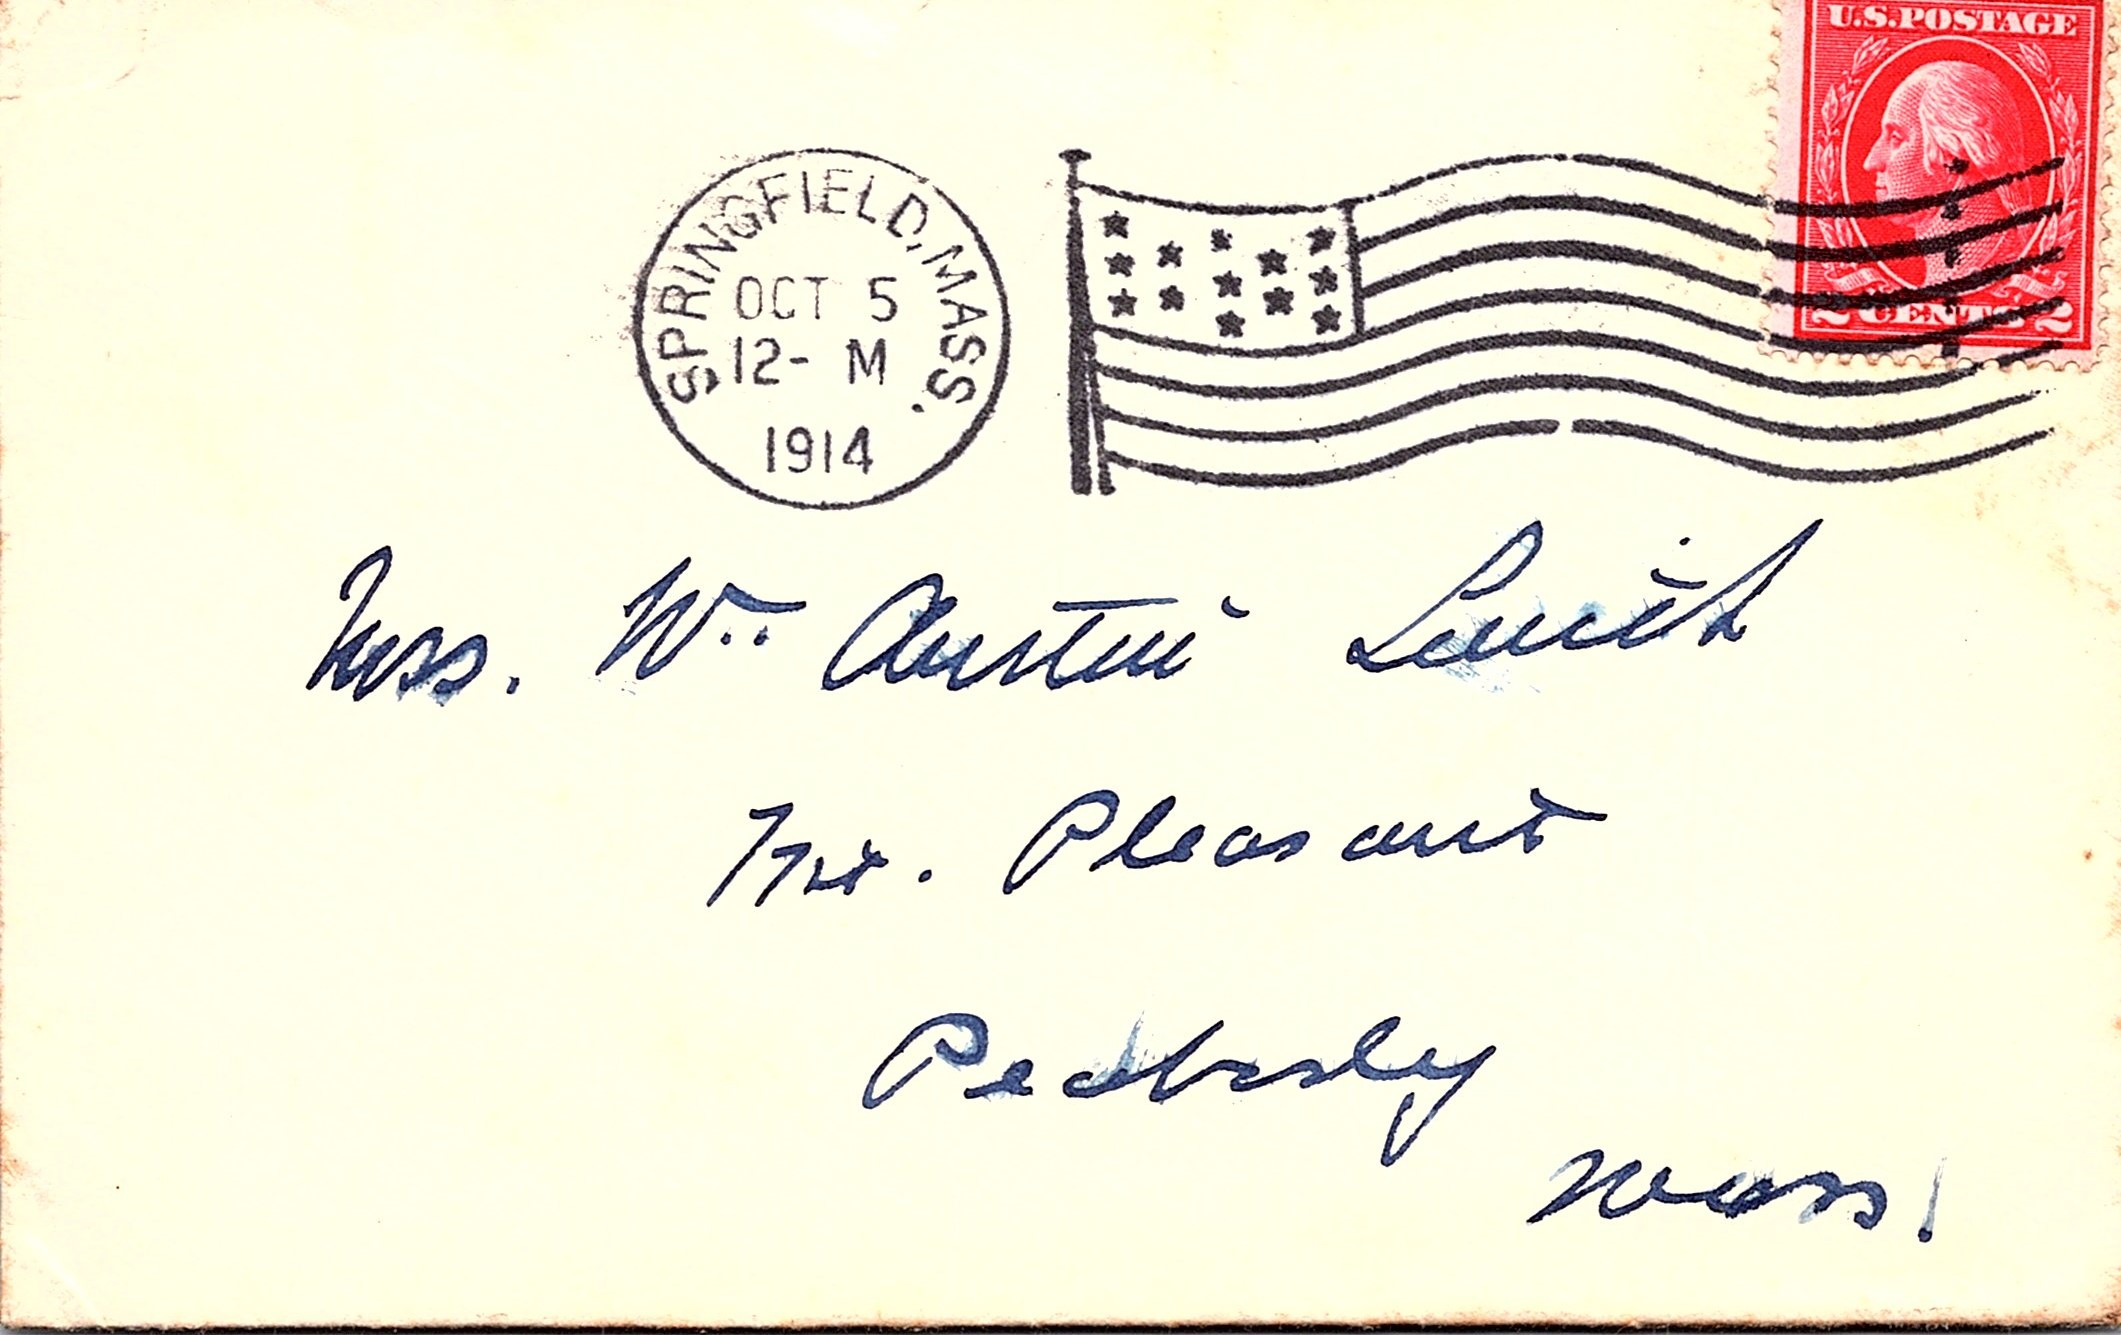 U.S.POSTAGE
2 CENTS 2
SPRINGFIELD, MASS.
OCT 5
12- M
1914
Mrs. Wm Austin Smith
Mt. Pleasant
Peabody
Mass.